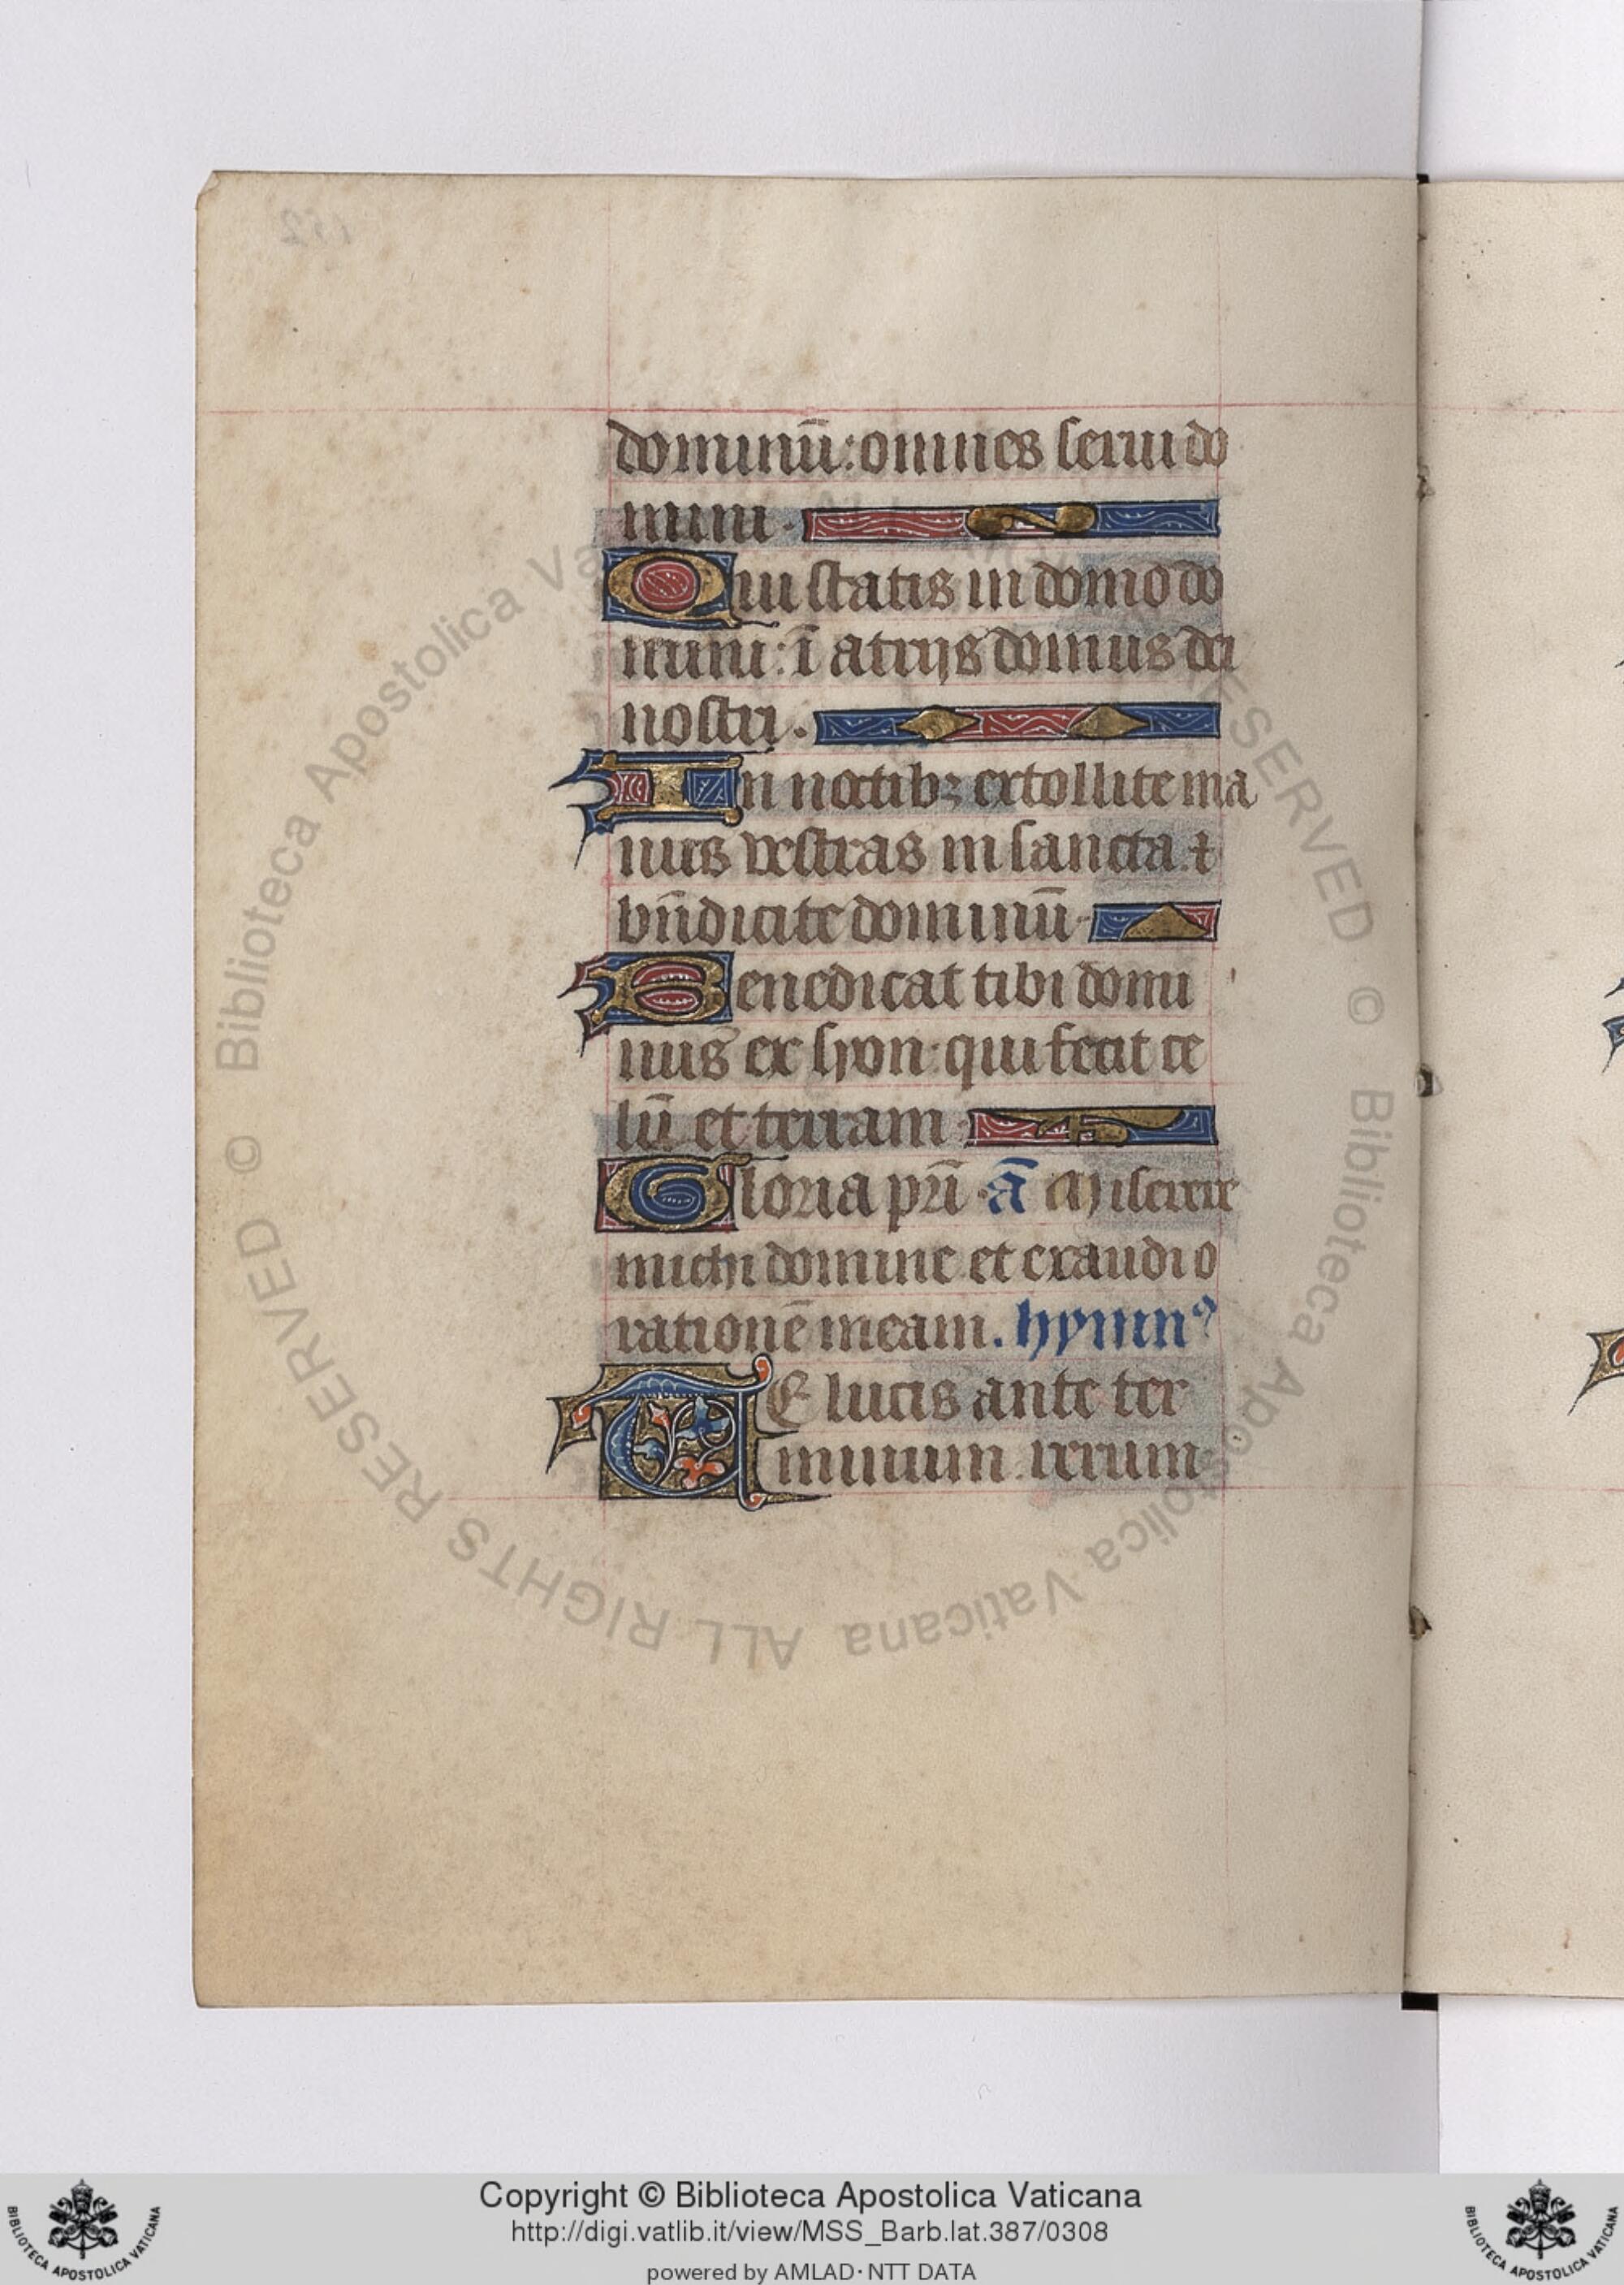 dominū: omnes serui do
mini.
Qui statis in domo do
mini: ī atrijs domus dei
nostri.
In noctibꝫ extollite ma
nus vestras in sancta. ⁊
bn̄dicite dominū.
Benedicat tibi domi
nus ex syon. qui fecit ce
lū et terram.
Gloria pr̄i. ā Miserere
michi domine et exaudi o
rationē meam. hymnꝰ
TE lucis ante ter
minum rerum
152
© Biblioteca Apostolica Vaticana ALL RIGHTS RESERVED
Copyright © Biblioteca Apostolica Vaticana
http://digi.vatlib.it/view/MSS_Barb.lat.387/0308
powered by AMLAD·NTT DATA
BIBLIOTECA APOSTOLICA VATICANA
BIBLIOTECA APOSTOLICA VATICANA